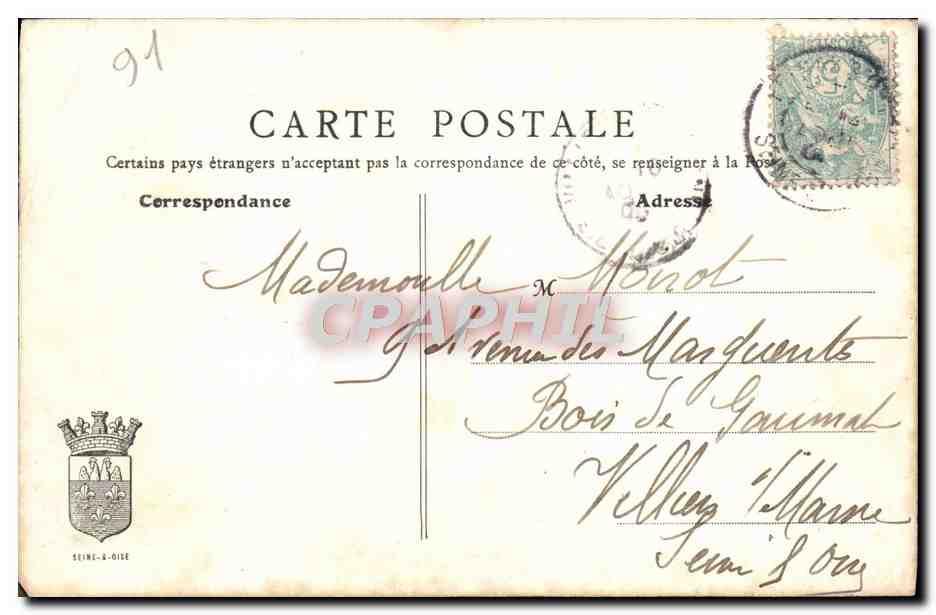 91
CARTE POSTALE
Certains pays étrangers n'acceptant pas la correspondance de ce côté, se renseigner à la Pos
Correspondance
Adresse
Mademoiselle M Moirot
9 Avenue des Marguerites
CPAPHIL
Bois de Gaumont
Villiers s/Marne
Seine & Oise
SEINE-&-OISE